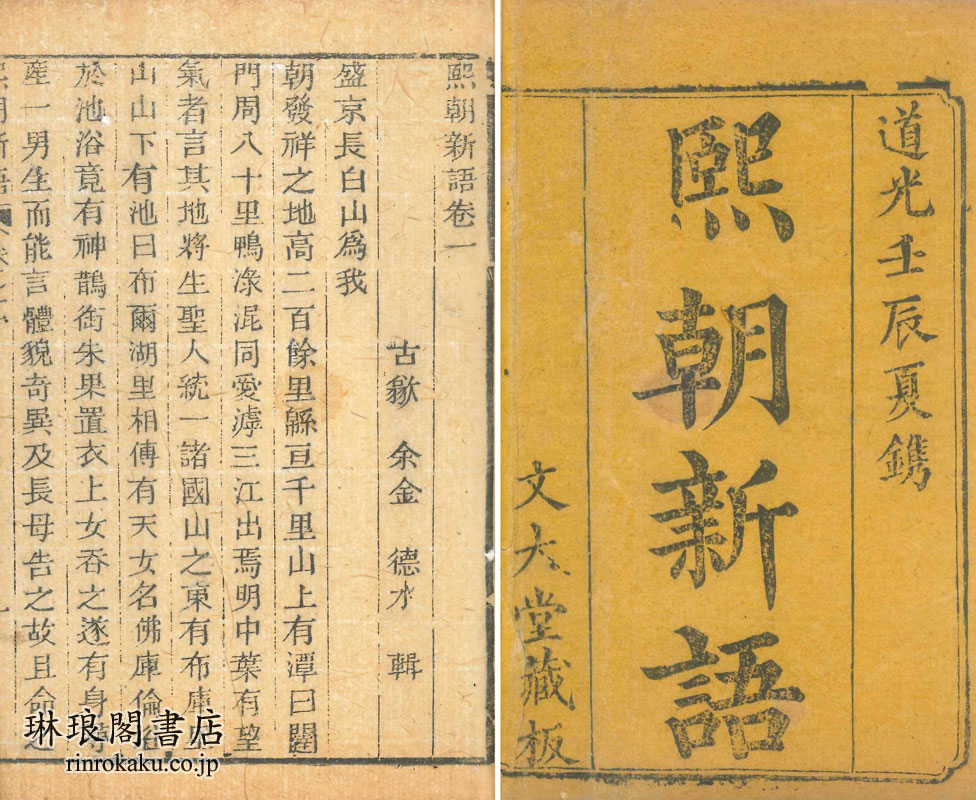 道光壬辰夏鐫
熙朝新語
文大堂藏板
熙朝新語卷一
古歙 余金 德水 輯
盛京長白山爲我
朝發祥之地高二百餘里緜亘千里山上有潭曰闥
門周八十里鴨淥混同愛滹三江出焉明中葉有望
氣者言其地將生聖人統一諸國山之東有布庫里
山山下有池曰布爾湖里相傳有天女名佛庫倫浴
於池浴竟有神鵲銜朱果置衣上女吞之遂有身尋
產一男生而能言體貌奇異及長母告之故且命之
熙朝新語
琳琅閣書店
rinrokaku.co.jp